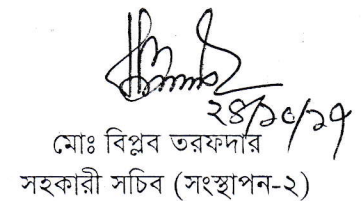 ২৪/১০/১৭
মোঃ বিপ্লব তরফদার
সহকারী সচিব (সংস্থাপন-২)